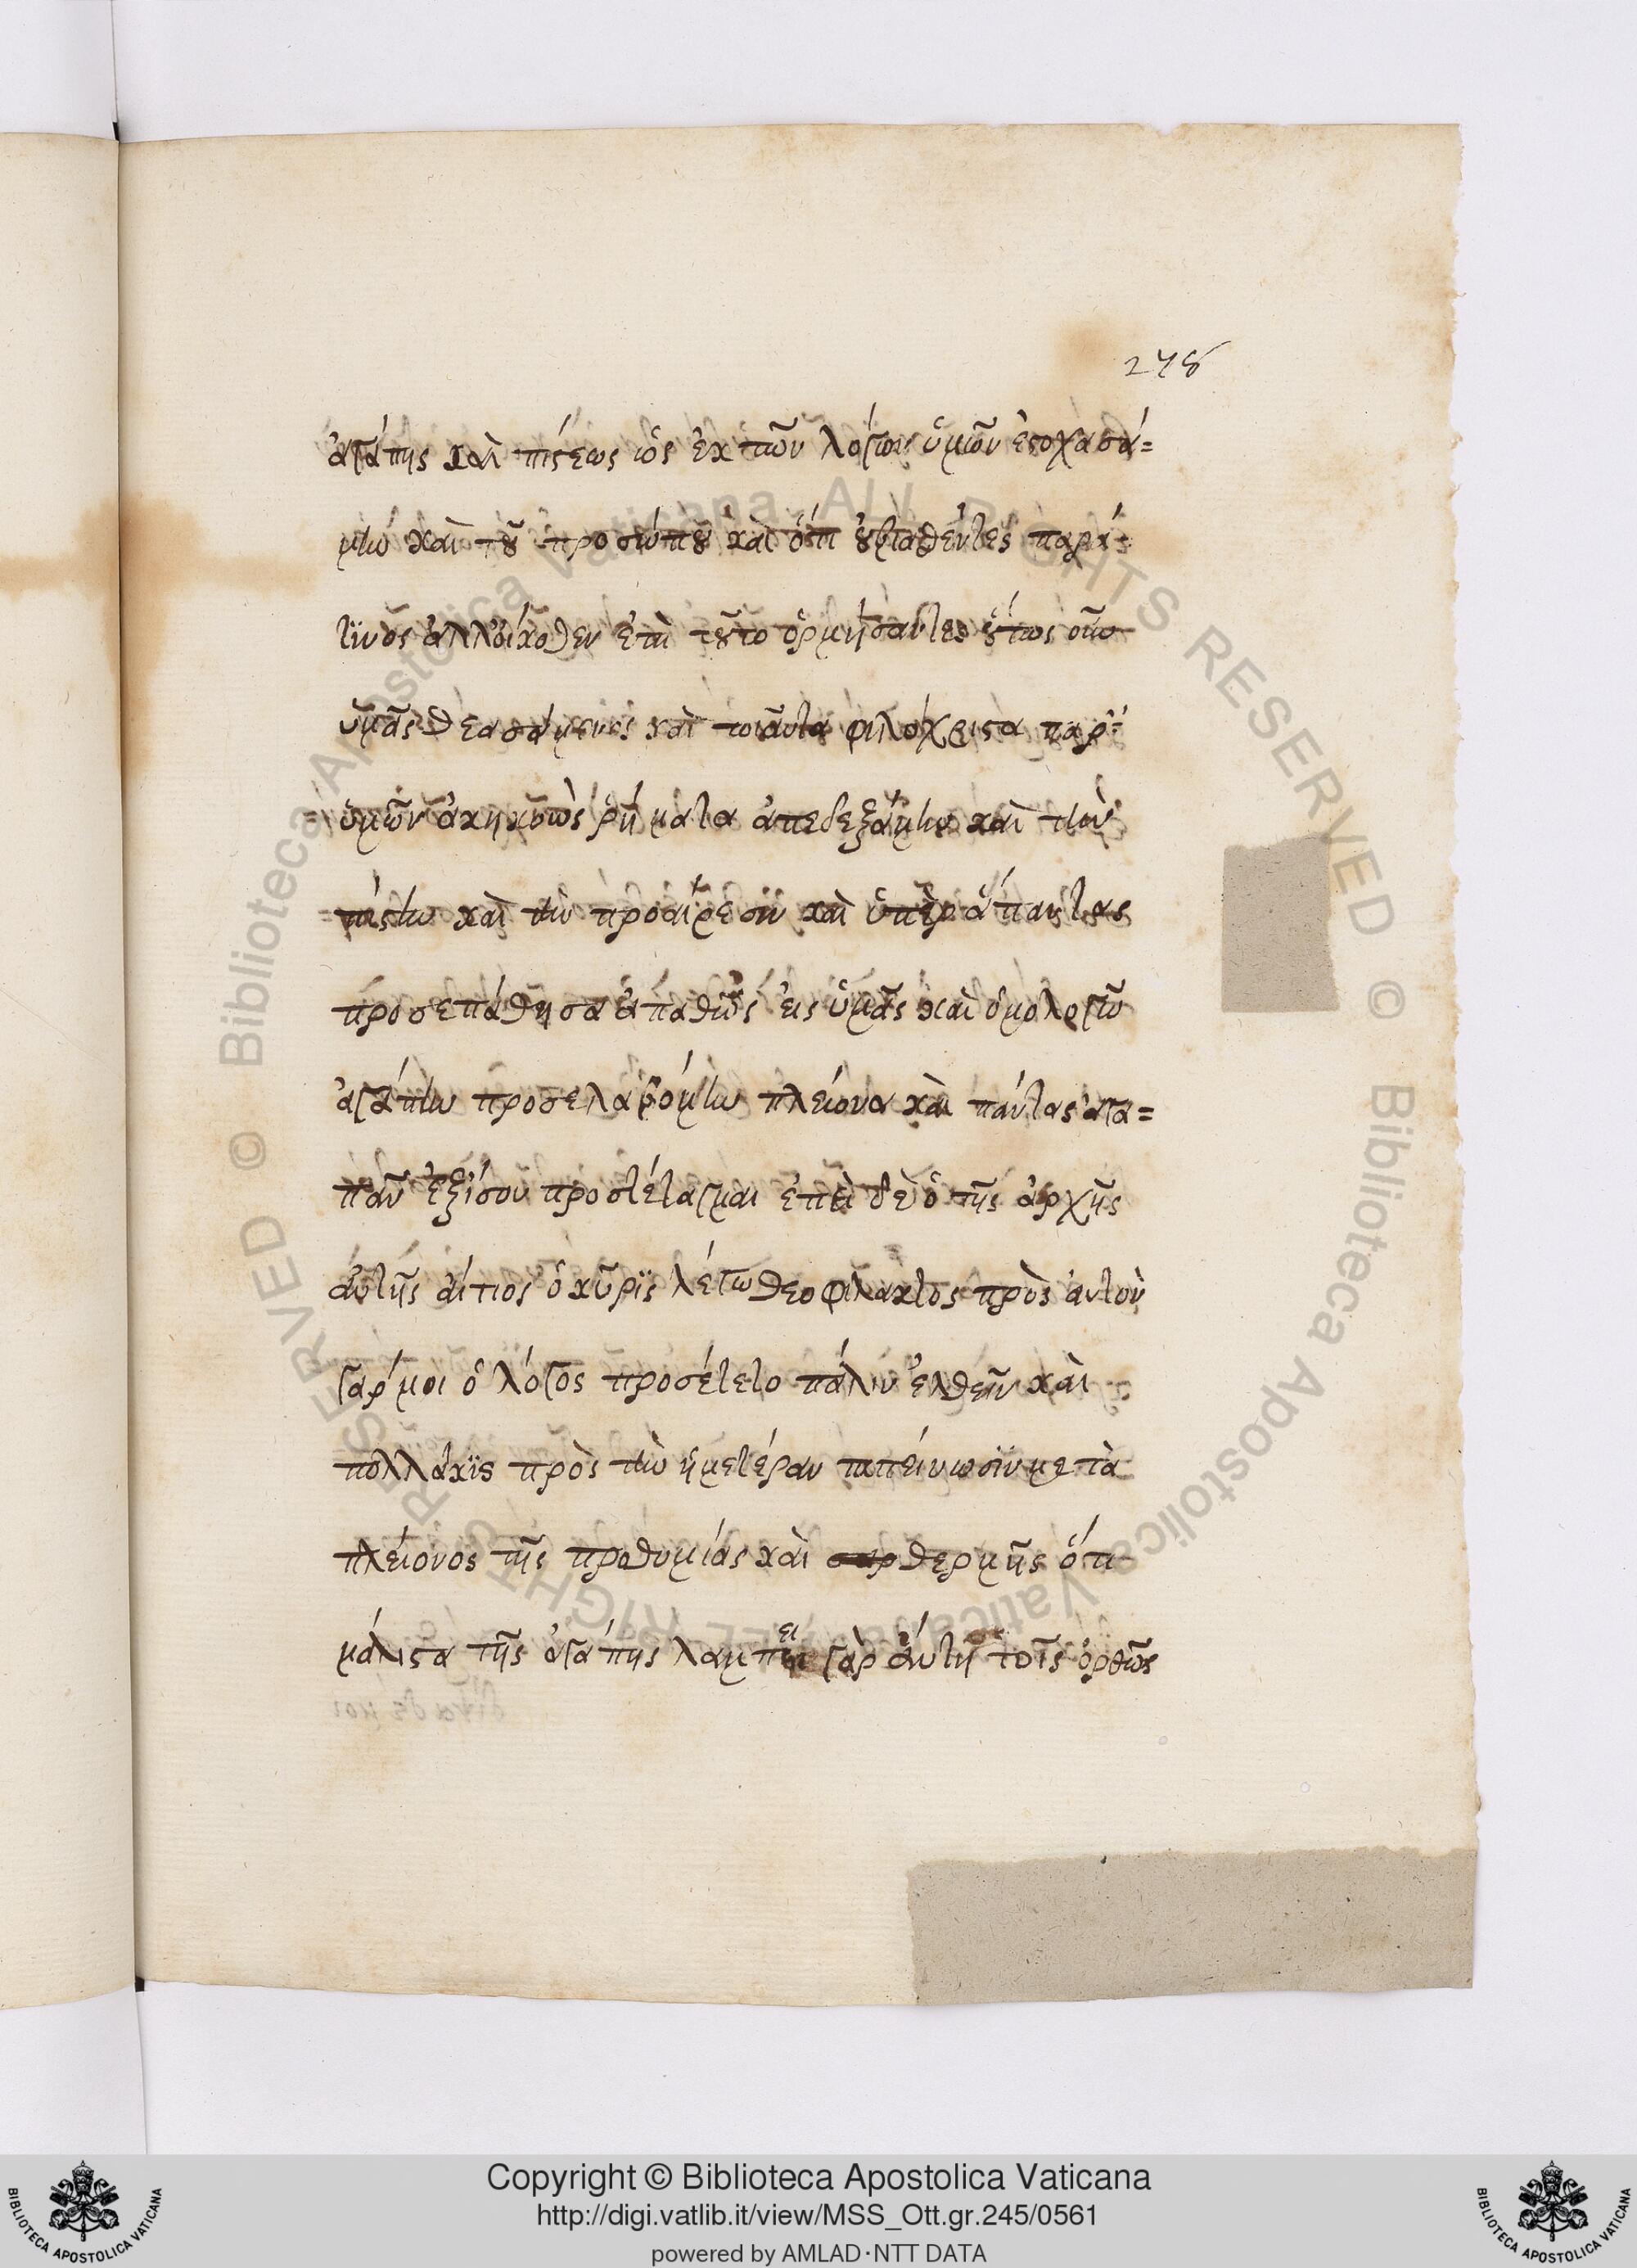 278
ἀγάπης καὶ πίστεως ὡς ἐκ τῶν λόγων ὑμῶν ἐστοχασά=
μην καὶ τοῦ προσώπου καὶ ὅτι οὐκ παρά
τϊνος ἀλλοίκοθεν ἐπὶ τοῦτο ὁρμήσαντες οὕτως οὖν
ὑμᾶς θεασάμενος καὶ τοιαῦτα φιλόχριστα παρ'
ὑμῶν ἀκηκοὼς ῥήματα ἀπεδεξάμην καὶ τὴν
πίστιν καὶ τὴν προαίρεσϊν καὶ ὑπὲρ ἅπαντας
προσεπάθησα ἀπαθῶς εἰς ὑμᾶς καὶ ὁμολογῶ
ἀγάπην προσελαβόμην πλείονα καὶ πάντας ἀγα=
πᾶν ἐξίσου προστέταγμαι ἐπεὶ δὲ ὁ τῆς ἀρχῆς
αὐτῆς αἴτιος ὁ κῦρϊς λέγω θεοφιλακτος πρὸς αὐτὸν
γάρ μοι ὁ λόγος προσέτετο πάλιν ἐλθεῖν καὶ
πολλάκϊς πρὸς τὴν ἡμετέραν ταπείνωσϊν μετὰ
πλείονος τῆς προθυμίας καὶ θερμῆς ὅτι
μάλιστα τῆς ἀγάπης λαμπει γὰρ αὐτὴ τοῖς ὀρθῶς
Copyright © Biblioteca Apostolica Vaticana
http://digi.vatlib.it/view/MSS_Ott.gr.245/0561
powered by AMLAD·NTT DATA
BIBLIOTECA APOSTOLICA VATICANA
BIBLIOTECA APOSTOLICA VATICANA
© Biblioteca Apostolica Vaticana ALL RIGHTS RESERVED © Biblioteca Apostolica Vaticana ALL RIGHTS RESERVED